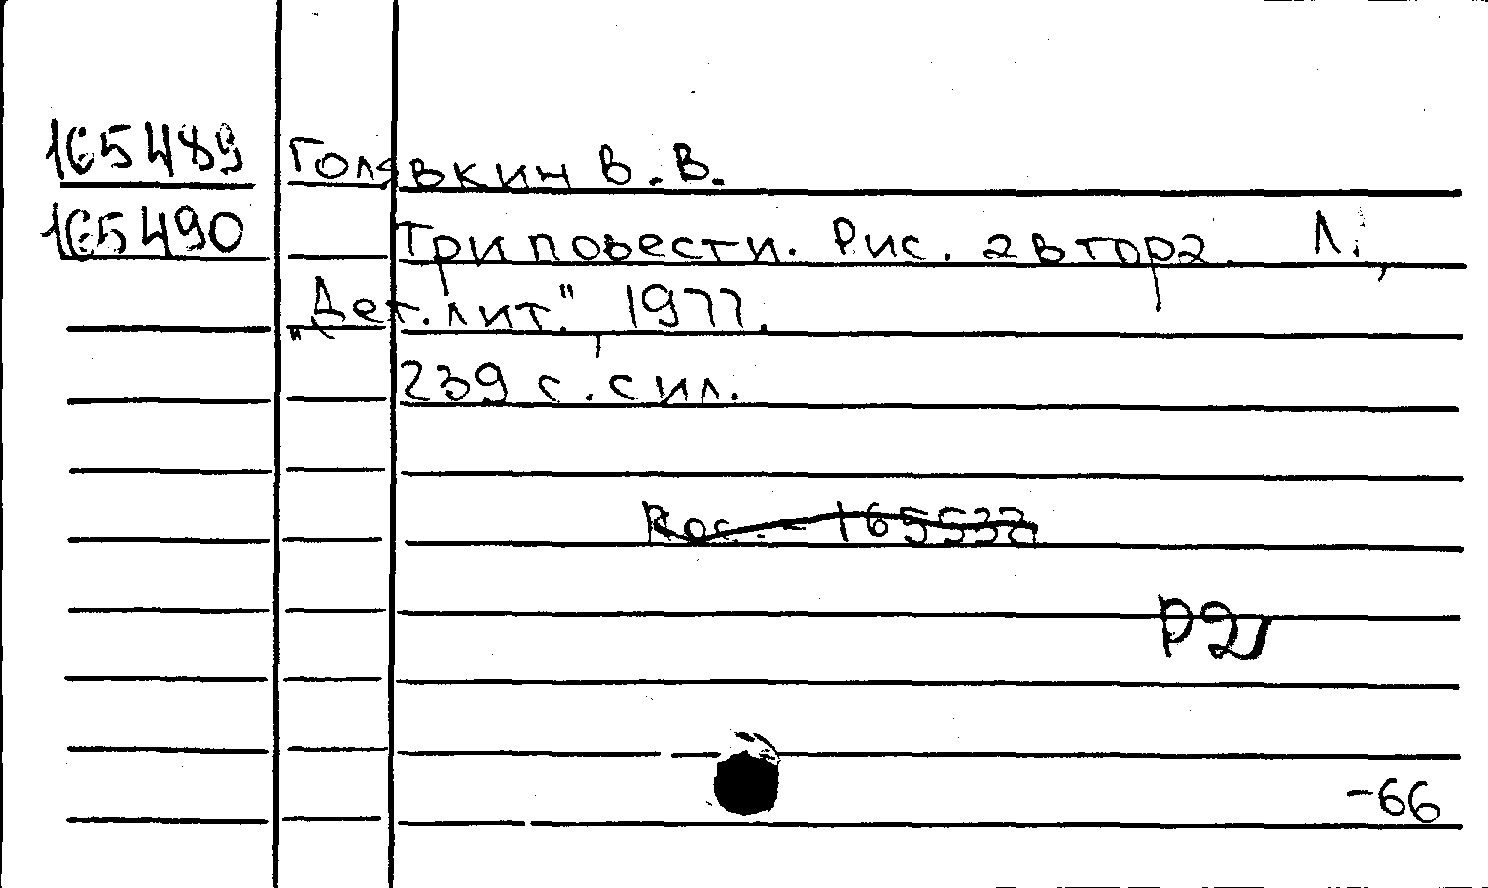 165489 Голявкин В.В.
165490 Три повести. Рис. автора. Л.,
„Дет.лит.", 1977.
239 с. с ил.
P2
-66